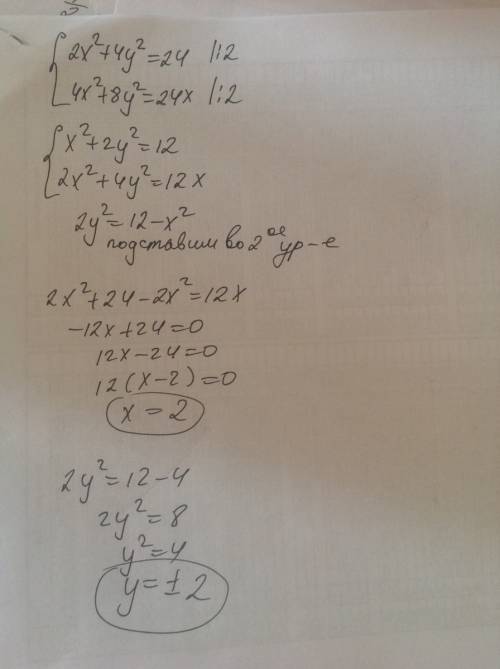 { 2x²+4y²=24 |:2
4x²+8y²=24x |:2
{ x²+2y²=12
2x²+4y²=12x
2y²=12-x²
подставим во 2ое ур-е
2x²+24-2x²=12x
-12x+24=0
12x-24=0
12(x-2)=0
x=2
2y²=12-4
2y²=8
y²=4
y=±2